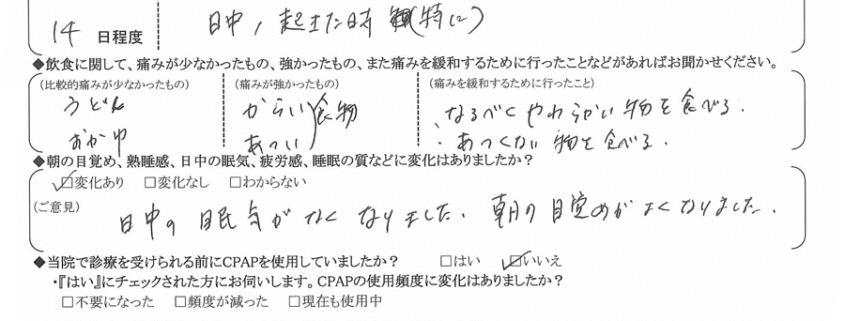 14 日程度
日中，起きた時(特に)
◆飲食に関して、痛みが少なかったもの、強かったもの、また痛みを緩和するために行ったことなどがあればお聞かせください。
(比較的痛みが少なかったもの) (痛みが強かったもの) (痛みを緩和するために行ったこと)
うどん からい 食物 ・なるべくやわらかい物を食べる．
おかゆ あつい ・あつくない物を食べる．
◆朝の目覚め、熟睡感、日中の眠気、疲労感、睡眠の質などに変化はありましたか？
☑変化あり □変化なし □わからない
(ご意見) 日中の眠気がなくなりました．朝の目覚めがよくなりました．
◆当院で診療を受けられる前にCPAPを使用していましたか？ □はい ☑いいえ
・『はい』にチェックされた方にお伺いします。CPAPの使用頻度に変化はありましたか？
□不要になった □頻度が減った □現在も使用中